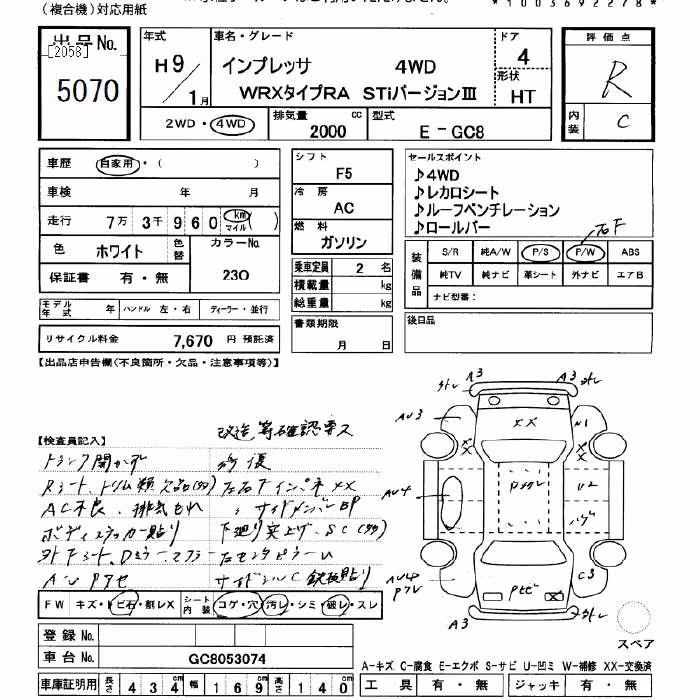 (複合機)対応用紙
*1003692278*
出品No.
[2058]
5070
年式
H9/1月
車名・グレード
インプレッサ 4WD
WRXタイプRA STiバージョンⅢ
ドア
4
形状
HT
評価点
R
内装
C
2WD・4WD
排気量
2000
cc
型式
E-GC8
車歴
自家用・( )
車検 年 月
走行 7万3千960 km マイル ( )
色 ホワイト
色替
カラーNo.
230
保証書 有・無
モデル年式 年 ハンドル 左・右 ディーラー・並行
リサイクル料金 7,670 円 預託済
シフト
F5
冷房
AC
燃料
ガソリン
乗車定員 2 名
積載量 kg
総重量 kg
書類期限
月 日
セールスポイント
♪4WD
♪レカロシート
♪ルーフベンチレーション
♪ロールバー
右F
装備品
S/R 純A/W P/S P/W ABS
純TV 純ナビ 革シート 外ナビ エアB
ナビ型番:
後日品
【出品店申告欄(不良箇所・欠品・注意事項等)】
改造等確認要ス
【検査員記入】
トランク開かず 修復
AC不良、排気もれ
ボディステッカー貼り 下廻り突上ゲ、SC(多)
FW キズ・トビ石・割レX シート内装 コゲ・穴・汚レ・シミ・破レ・スレ
登録No.
車台No. GC8053074
車庫証明用 長さ 434 cm 幅 169 cm 高さ 140 cm
A3
A3
外レ
AU3
XX
A1
XX
AU4
U2
C3
AU4
A3
外レ
スペア
A-キズ C-腐食 E-エクボ S-サビ U-凹ミ W-補修 XX-交換済
工具 有・無 ジャッキ 有・無